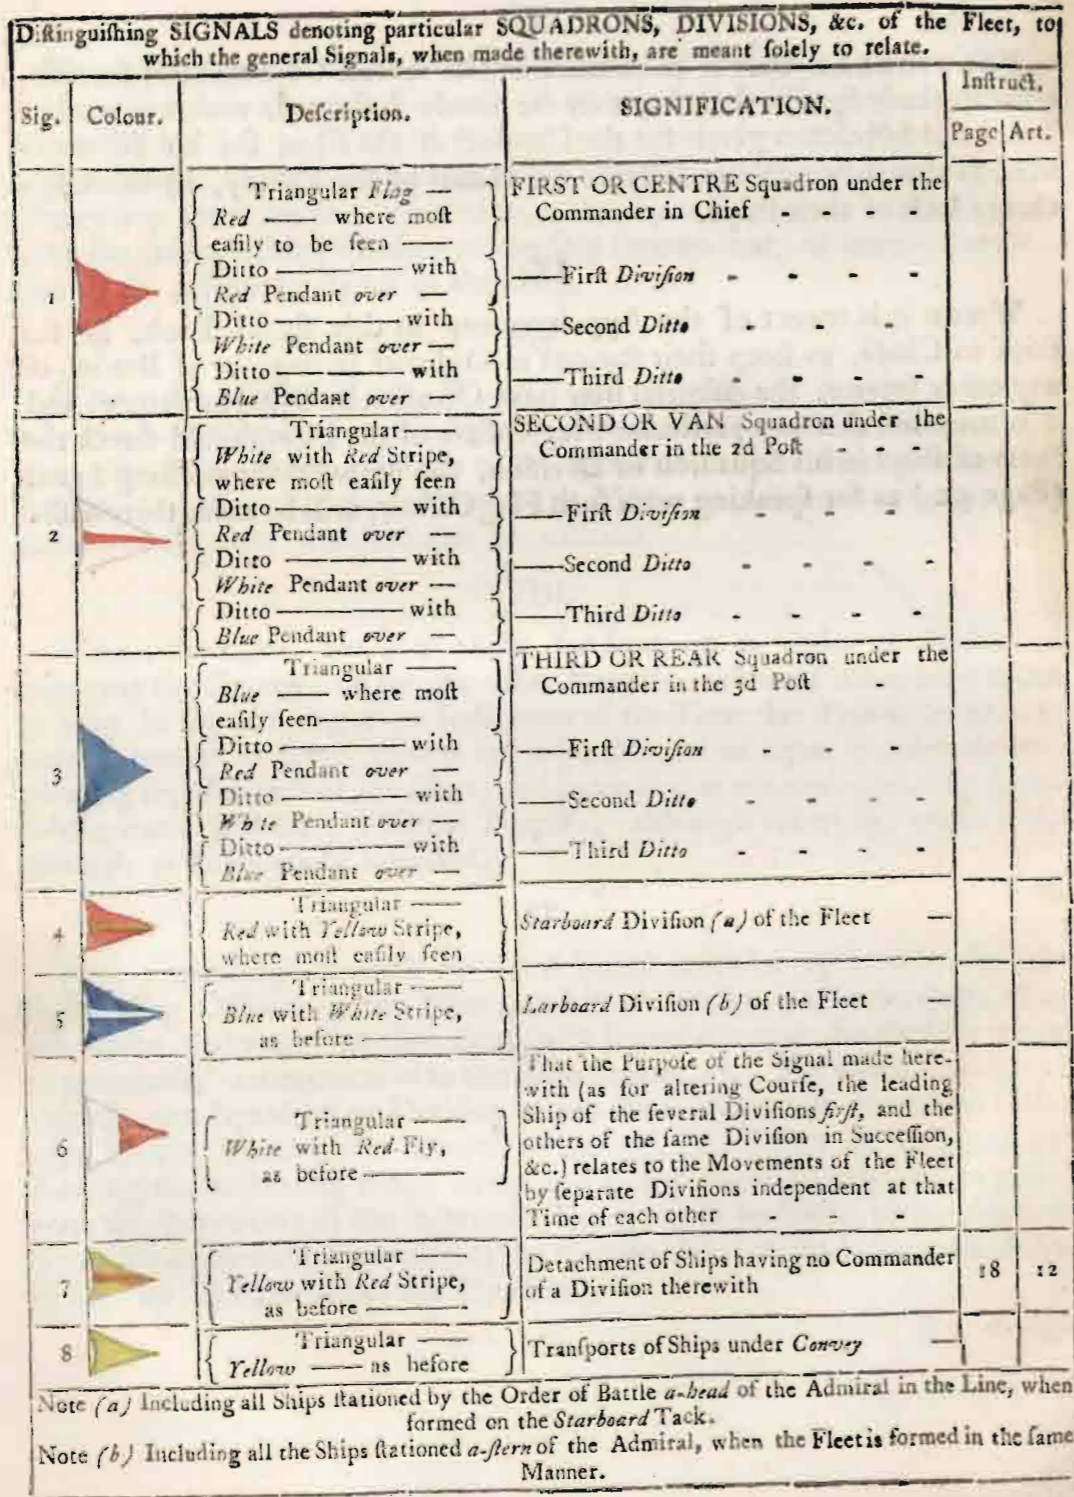 Diſtinguiſhing SIGNALS denoting particular SQUADRONS, DIVISIONS, &c. of the Fleet, to
which the general Signals, when made therewith, are meant ſolely to relate.
Sig. Colour. Deſcription. SIGNIFICATION. Inſtruct.
Page Art.
1
Triangular Flag —
Red —— where moſt
eaſily to be ſeen ——
FIRST OR CENTRE Squadron under the
Commander in Chief - - - -
Ditto ———— with
Red Pendant over —
——Firſt Diviſion - - - -
Ditto ———— with
White Pendant over —
——Second Ditto - - -
Ditto ———— with
Blue Pendant over —
——Third Ditto - - - -
2
Triangular——
White with Red Stripe,
where moſt eaſily ſeen
SECOND OR VAN Squadron under the
Commander in the 2d Poſt - - -
Ditto ———— with
Red Pendant over —
——Firſt Diviſion - - -
Ditto ———— with
White Pendant over —
——Second Ditto - - - -
Ditto ———— with
Blue Pendant over —
——Third Ditto - - - -
3
Triangular ——
Blue —— where moſt
eaſily ſeen————
THIRD OR REAR Squadron under the
Commander in the 3d Poſt -
Ditto ———— with
Red Pendant over —
——Firſt Diviſion - - -
Ditto ———— with
White Pendant over —
——Second Ditto - - - -
Ditto ———— with
Blue Pendant over —
——Third Ditto - - - -
4
Triangular ——
Red with Yellow Stripe,
where moſt eaſily ſeen
Starboard Diviſion (a) of the Fleet —
5
Triangular ——
Blue with White Stripe,
as before ————
Larboard Diviſion (b) of the Fleet —
6
Triangular ——
White with Red Fly,
as before ————
That the Purpoſe of the Signal made here-
with (as for altering Courſe, the leading
Ship of the ſeveral Diviſions firſt, and the
others of the ſame Diviſion in Succeſſion,
&c.) relates to the Movements of the Fleet
by ſeparate Diviſions independent at that
Time of each other - - -
7
Triangular ——
Yellow with Red Stripe,
as before ————
Detachment of Ships having no Commander
of a Diviſion therewith
18 12
8
Triangular ——
Yellow —— as before
Tranſports of Ships under Convey —
Note (a) Including all Ships ſtationed by the Order of Battle a-head of the Admiral in the Line, when
formed on the Starboard Tack.
Note (b) Including all the Ships ſtationed a-ſtern of the Admiral, when the Fleet is formed in the ſame
Manner.